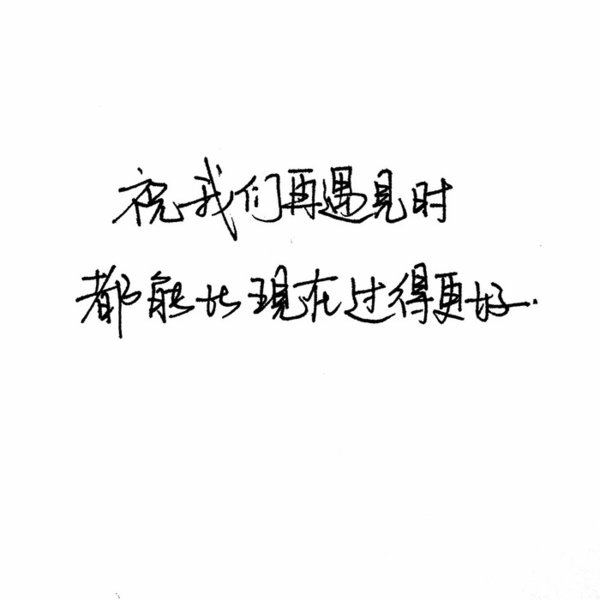 祝我们再遇見时
都能比現在过得更好.